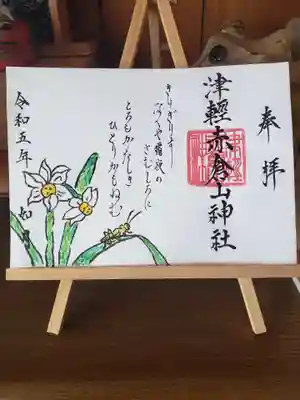 奉拝
津輕赤倉山神社
きりぎりす
なくや霜夜の
さむしろに
ころもかたしき
ひとりかもねむ
令和五年